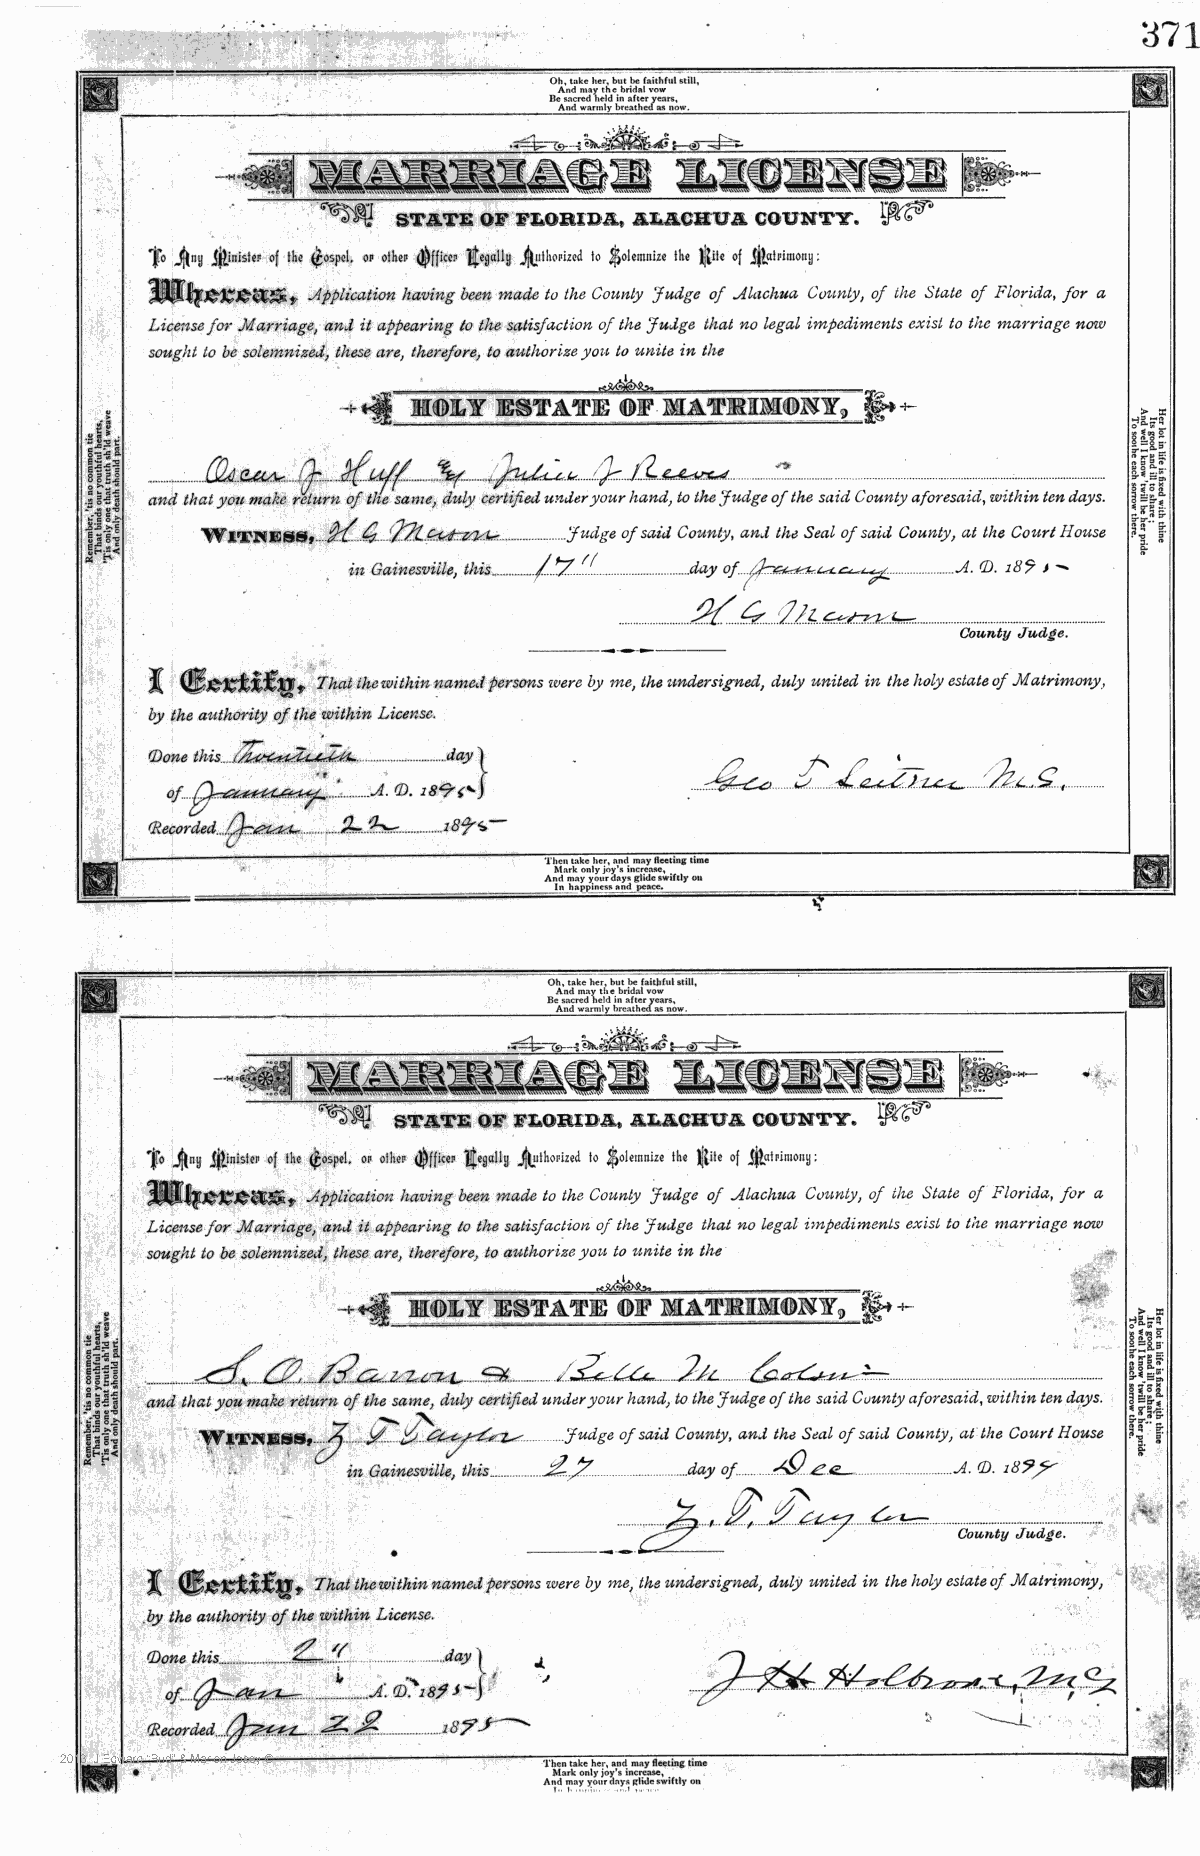 371
Oh, take her, but be faithful still,
And may the bridal vow
Be sacred held in after years,
And warmly breathed as now.
MARRIAGE LICENSE
STATE OF FLORIDA, ALACHUA COUNTY.
To Any Minister of the Gospel, or other Officer Legally Authorized to Solemnize the Rite of Matrimony:
Whereas, Application having been made to the County Judge of Alachua County, of the State of Florida, for a
License for Marriage, and it appearing to the satisfaction of the Judge that no legal impediments exist to the marriage now
sought to be solemnized, these are, therefore, to authorize you to unite in the
HOLY ESTATE OF MATRIMONY,
Oscar J Huff & Julia J Reeves
and that you make return of the same, duly certified under your hand, to the Judge of the said County aforesaid, within ten days.
WITNESS, H G Mason Judge of said County, and the Seal of said County, at the Court House
in Gainesville, this 17" day of January A. D. 1895
H G Mason
County Judge.
I Certify, That the within named persons were by me, the undersigned, duly united in the holy estate of Matrimony,
by the authority of the within License.
Done this Twentieth day
of January A. D. 1895
Geo T Leitner M.G.
Recorded Jan 22 1895
Remember, 'tis no common tie
That binds our youthful hearts,
'Tis only one that truth sh'ld weave
And only death should part.
Her lot in life is fixed with thine
Its good and ill to share;
And well I know 'twill be her pride
To soothe each sorrow there.
Then take her, and may fleeting time
Mark only joy's increase,
And may your days glide swiftly on
In happiness and peace.
Oh, take her, but be faithful still,
And may the bridal vow
Be sacred held in after years,
And warmly breathed as now.
MARRIAGE LICENSE
STATE OF FLORIDA, ALACHUA COUNTY.
To Any Minister of the Gospel, or other Officer Legally Authorized to Solemnize the Rite of Matrimony:
Whereas, Application having been made to the County Judge of Alachua County, of the State of Florida, for a
License for Marriage, and it appearing to the satisfaction of the Judge that no legal impediments exist to the marriage now
sought to be solemnized, these are, therefore, to authorize you to unite in the
HOLY ESTATE OF MATRIMONY,
S. O. Barron & Belle M Colson
and that you make return of the same, duly certified under your hand, to the Judge of the said County aforesaid, within ten days.
WITNESS, Z T Taylor Judge of said County, and the Seal of said County, at the Court House
in Gainesville, this 27 day of Dec A. D. 1894
Z. T. Taylor
County Judge.
I Certify, That the within named persons were by me, the undersigned, duly united in the holy estate of Matrimony,
by the authority of the within License.
Done this 2" day
of Jan A. D. 1895
J H Holbrook, M,G
Recorded Jan 22 1895
Remember, 'tis no common tie
That binds our youthful hearts,
'Tis only one that truth sh'ld weave
And only death should part.
Her lot in life is fixed with thine
Its good and ill to share;
And well I know 'twill be her pride
To soothe each sorrow there.
Then take her, and may fleeting time
Mark only joy's increase,
And may your days glide swiftly on